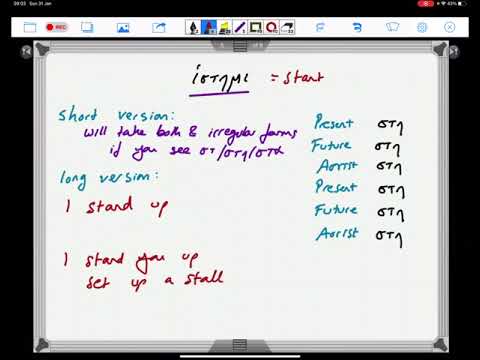 09:03 Sun 31 Jan
43%
REC
ἵστημι = start
short version:
will take both & irregular forms
if you see στ/στη/στα
long version:
I stand up
I stand you up
set up a stall
Present στη
Future στη
Aorist στη
Present στη
Future στη
Aorist στη